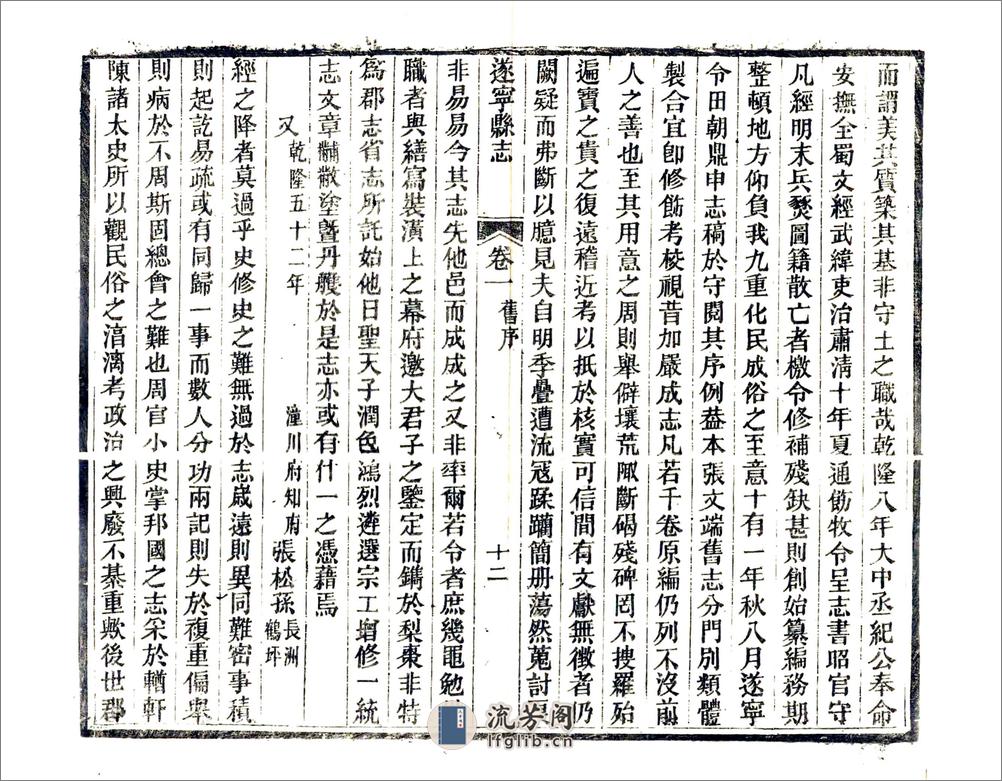 而謂美其質築其基非守土之職哉乾隆八年大中丞紀公奉命
安撫全蜀文經武緯吏治肅清十年夏通飭牧令呈志書昭官守
凡經明末兵燹圖籍散亡者檄令修補殘缺甚則創始纂編務期
整頓地方仰負我九重化民成俗之至意十有一年秋八月遂寧
令田朝鼎申志稿於守閱其序例益本張文端舊志分門別類體
製合宜卽修飭考校視昔加嚴成志凡若干卷原編仍列不沒前
人之善也至其用意之周則舉僻壤荒陬斷碣殘碑罔不搜羅殆
遍寶之貴之復遠稽近考以抵於核實可信間有文獻無徵者仍
闕疑而弗斷以臆見夫自明季疊遭流冦蹂躪簡册蕩然蒐討
遂寧縣志
卷一 舊序
十二
非易易今其志先他邑而成成之又非率爾若令者庶幾黽勉
職者與繕寫裝潢上之幕府邀大君子之鑒定而鐫於梨棗非特
爲郡志省志所託始他日聖天子潤色鴻烈遴選宗工增修一統
志文章黼黻塗曁丹雘於是志亦或有什一之憑藉焉
又 乾隆五十二年 潼川府知府 張松孫 長洲 鶴坪
經之降者莫過乎史修史之難無過於志歲遠則異同難密事積
則起訖易疏或有同歸一事而數人分功兩記則失於複重偏舉
則病於不周斯固總會之難也周官小史掌邦國之志采於輶軒
陳諸太史所以觀民俗之湻漓考政治之興廢不綦重歟後世郡
流芳阁
lfglib.cn